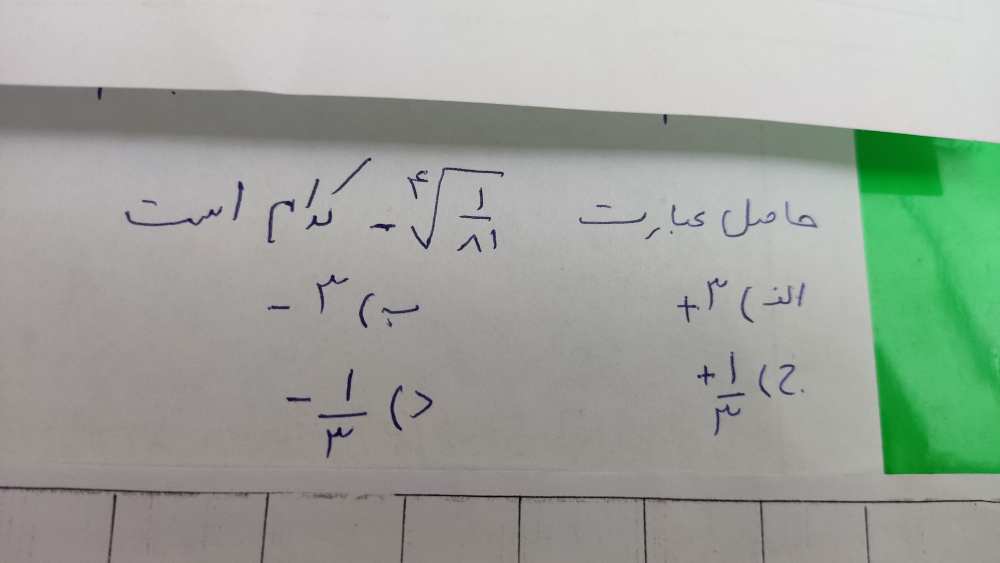 حاصل عبارت -∜(۱/۸۱) کدام است
الف) +۳ ب) -۳
ج) +۱/۳ د) -۱/۳